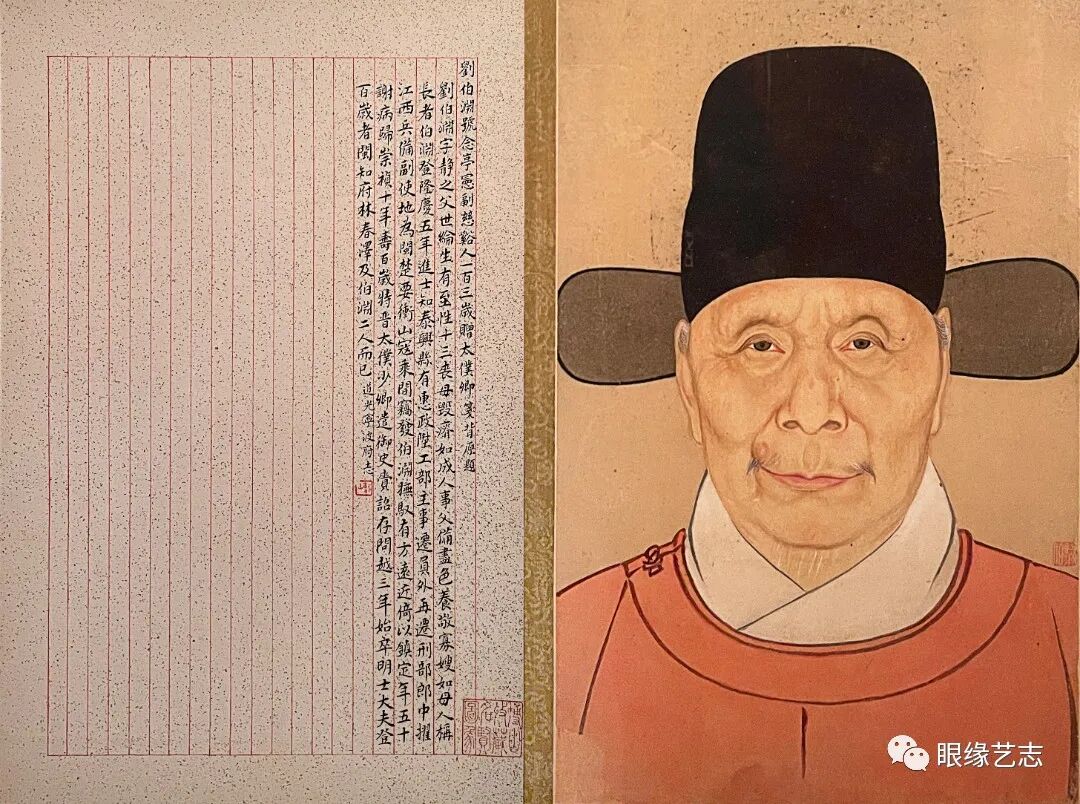 劉伯淵號念亭憲副慈谿人一百三歲贈太僕卿箋背原題
劉伯淵字静之父世綸生有至性十三喪母毀瘠如成人事父備盡色養敬寡嫂如母人稱
長者伯淵登隆慶五年進士知泰興縣有惠政陞工部主事遷員外再遷刑部郎中擢
江西兵備副使地為閩楚要衝山寇乘間竊發伯淵撫馭有方遠近倚以鎮定年五十
謝病歸崇禎十年壽百歲特晉太僕少卿遣御史賫詔存問越三年始卒明士大夫登
百歲者閩知府林春澤及伯淵二人而已 道光寧波府志
眼缘艺志